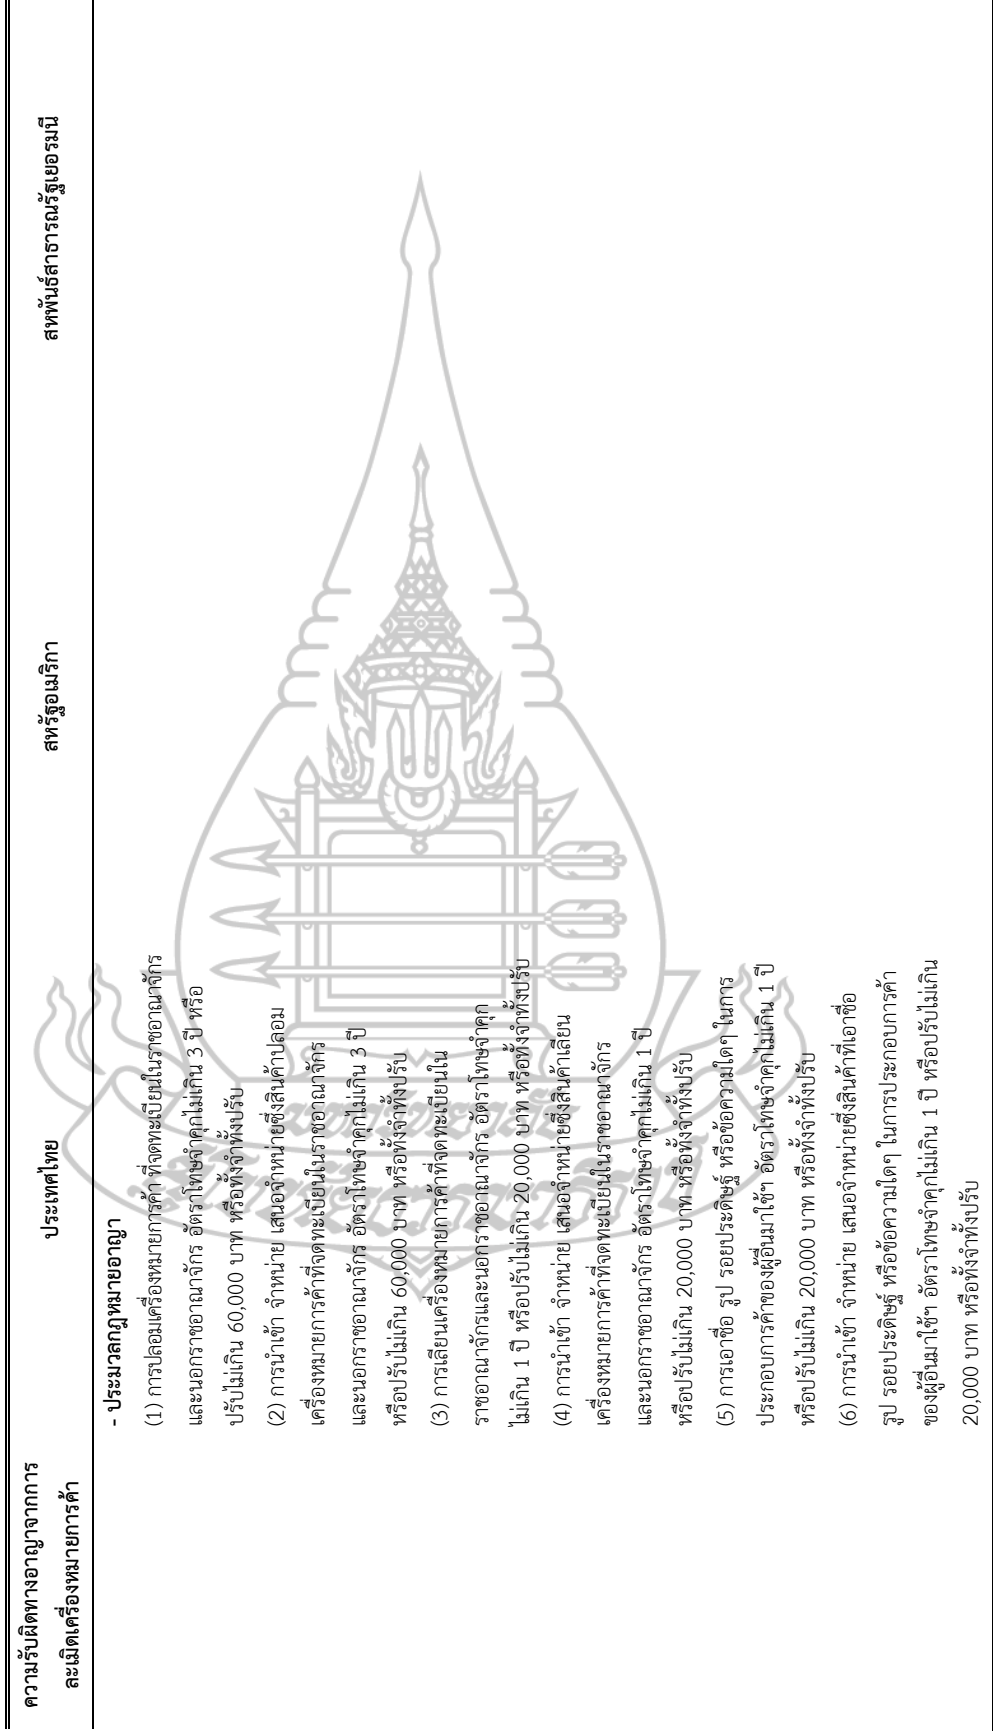 ความรับผิดทางอาญาจากการ
ละเมิดเครื่องหมายการค้า
ประเทศไทย
สหรัฐอเมริกา
สหพันธ์สาธารณรัฐเยอรมนี
- ประมวลกฎหมายอาญา
(1) การปลอมเครื่องหมายการค้า ที่จดทะเบียนในราชอาณาจักร
และนอกราชอาณาจักร อัตราโทษจำคุกไม่เกิน 3 ปี หรือ
ปรับไม่เกิน 60,000 บาท หรือทั้งจำทั้งปรับ
(2) การนำเข้า จำหน่าย เสนอจำหน่ายซึ่งสินค้าปลอม
เครื่องหมายการค้าที่จดทะเบียนในราชอาณาจักร
และนอกราชอาณาจักร อัตราโทษจำคุกไม่เกิน 3 ปี
หรือปรับไม่เกิน 60,000 บาท หรือทั้งจำทั้งปรับ
(3) การเลียนเครื่องหมายการค้าที่จดทะเบียนใน
ราชอาณาจักรและนอกราชอาณาจักร อัตราโทษจำคุก
ไม่เกิน 1 ปี หรือปรับไม่เกิน 20,000 บาท หรือทั้งจำทั้งปรับ
(4) การนำเข้า จำหน่าย เสนอจำหน่ายซึ่งสินค้าเลียน
เครื่องหมายการค้าที่จดทะเบียนในราชอาณาจักร
และนอกราชอาณาจักร อัตราโทษจำคุกไม่เกิน 1 ปี
หรือปรับไม่เกิน 20,000 บาท หรือทั้งจำทั้งปรับ
(5) การเอาชื่อ รูป รอยประดิษฐ์ หรือข้อความใดๆ ในการ
ประกอบการค้าของผู้อื่นมาใช้ฯ อัตราโทษจำคุกไม่เกิน 1 ปี
หรือปรับไม่เกิน 20,000 บาท หรือทั้งจำทั้งปรับ
(6) การนำเข้า จำหน่าย เสนอจำหน่ายซึ่งสินค้าที่เอาชื่อ
รูป รอยประดิษฐ์ หรือข้อความใดๆ ในการประกอบการค้า
ของผู้อื่นมาใช้ฯ อัตราโทษจำคุกไม่เกิน 1 ปี หรือปรับไม่เกิน
20,000 บาท หรือทั้งจำทั้งปรับ